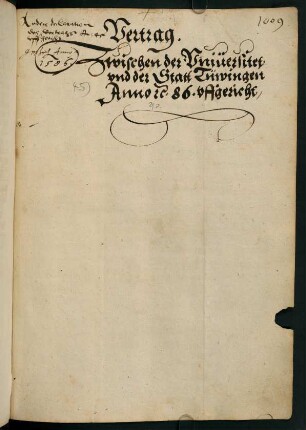 1009
Vertrag.
Zwischen der Vniuersitet
vnd der Statt Tüwingen
Anno ꝛc 86. vffgericht,
Anno
1586